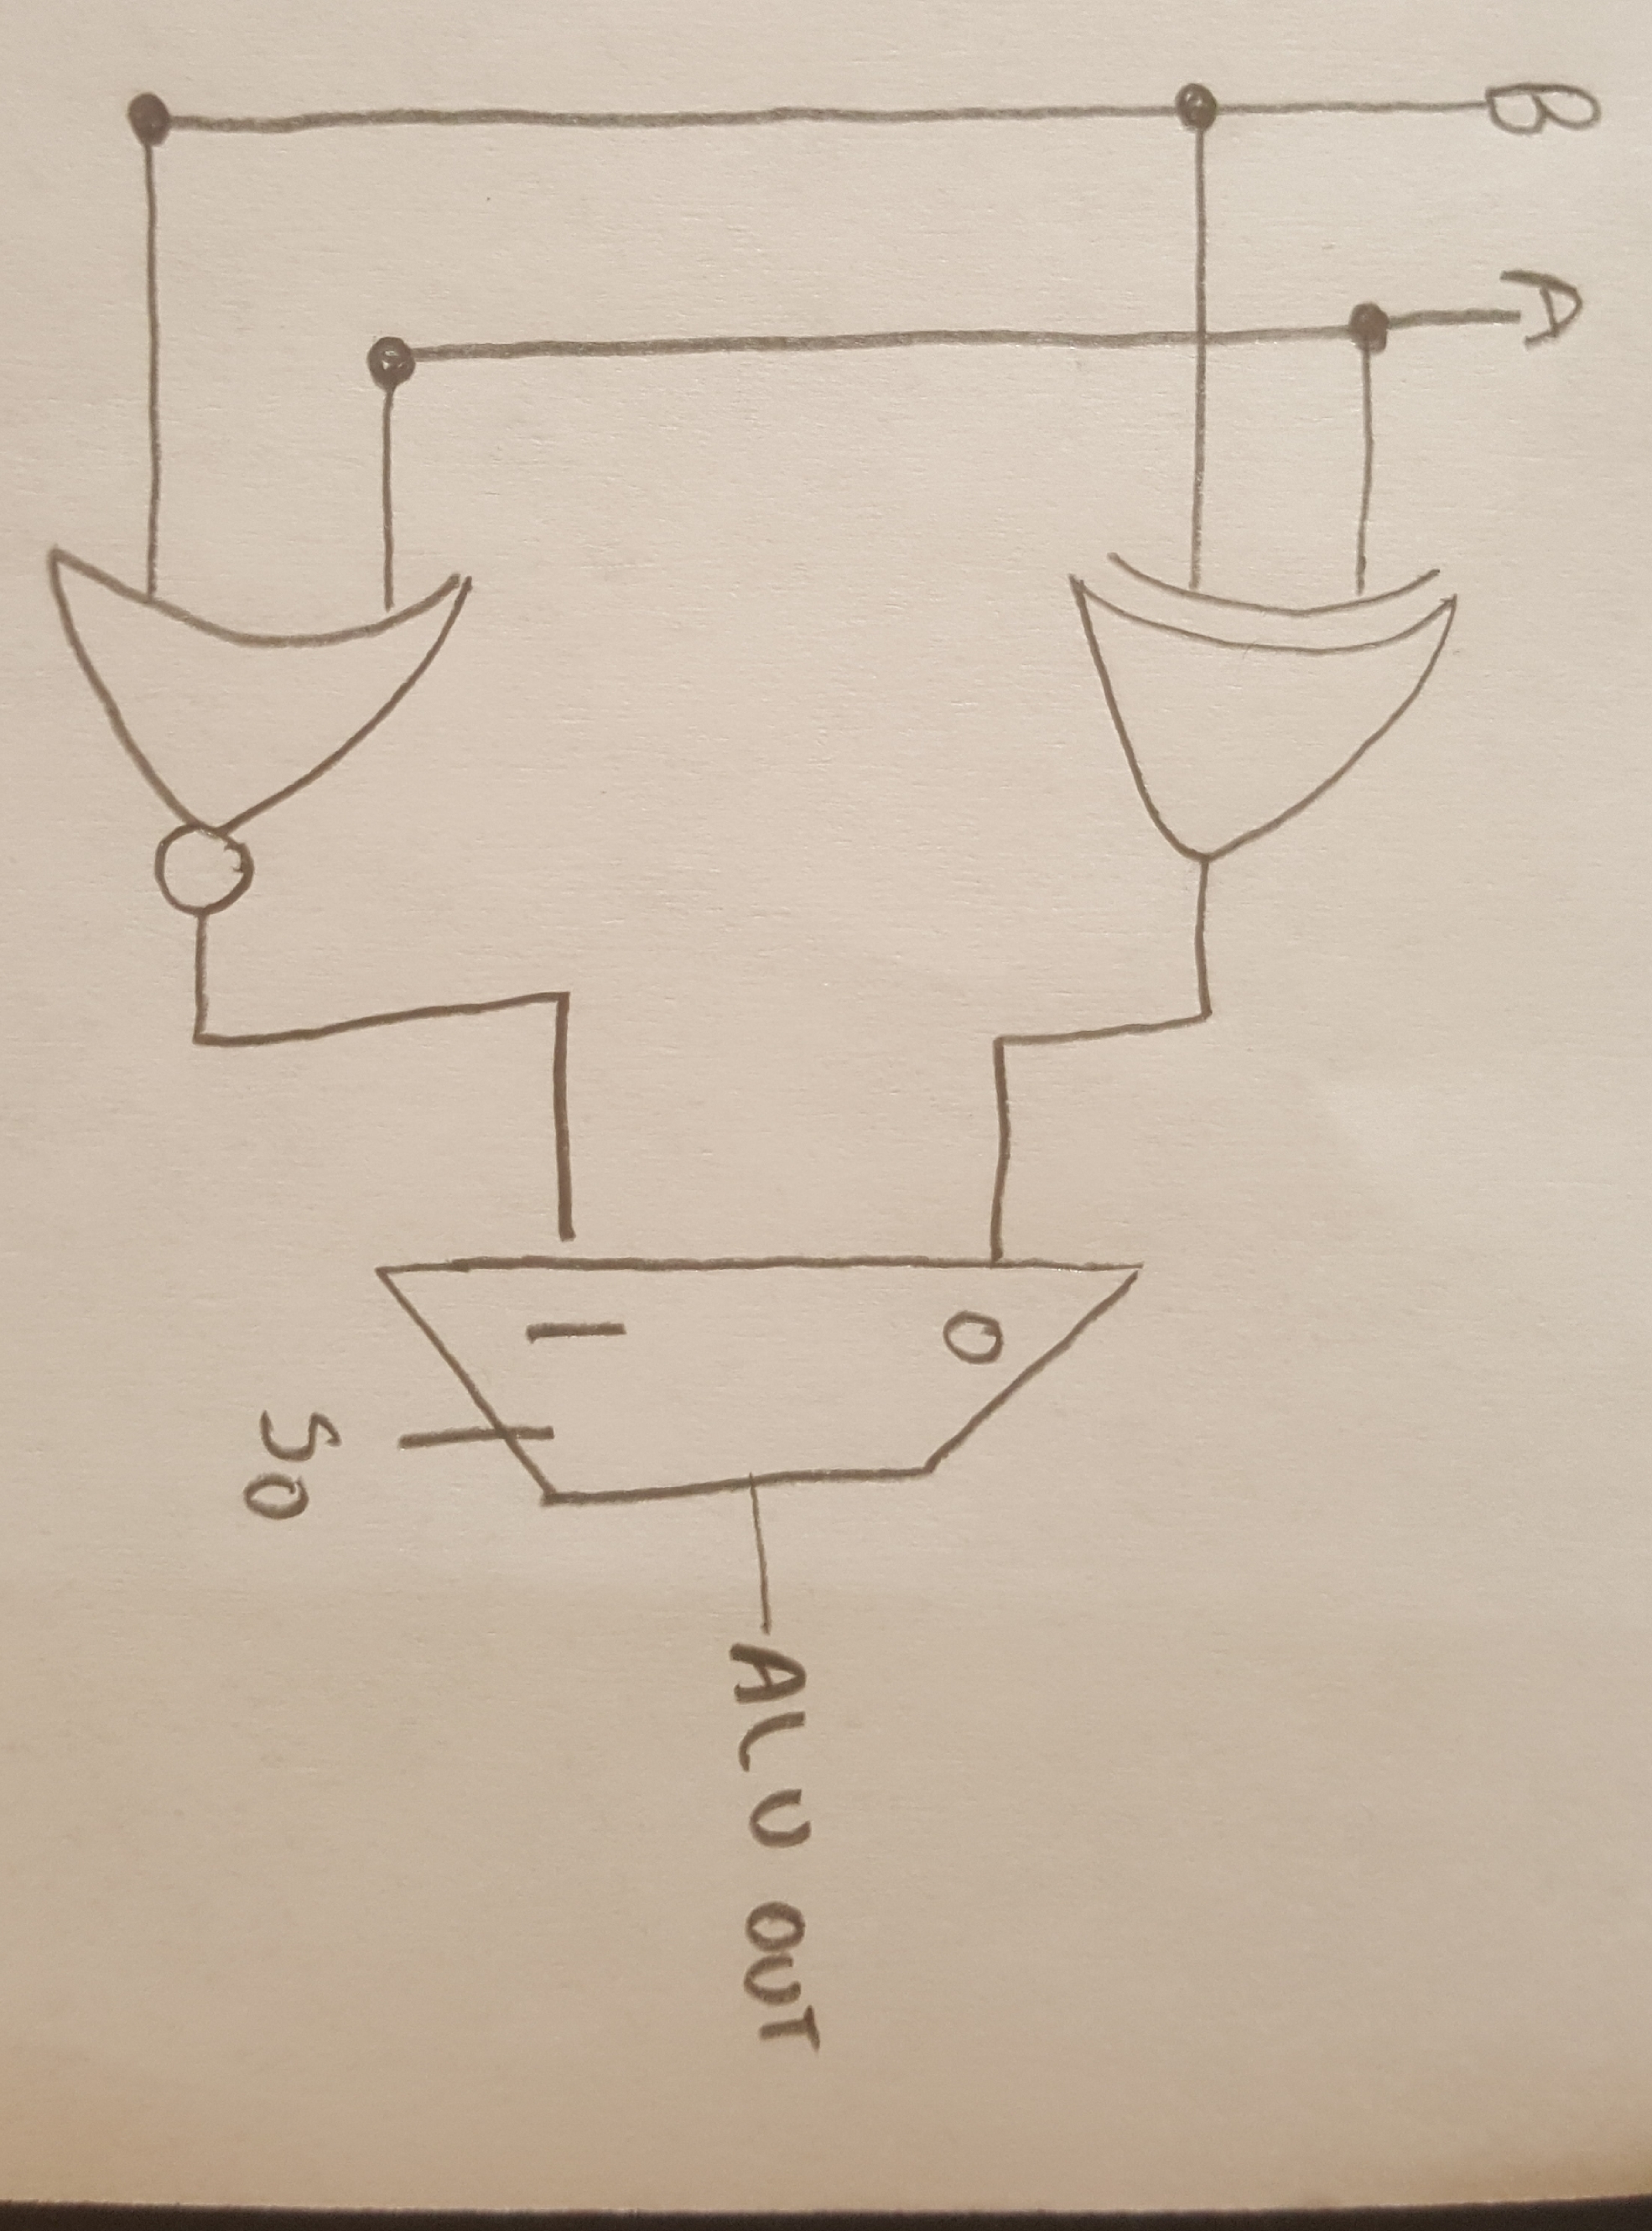 B
A
0
1
S0
ALU OUT